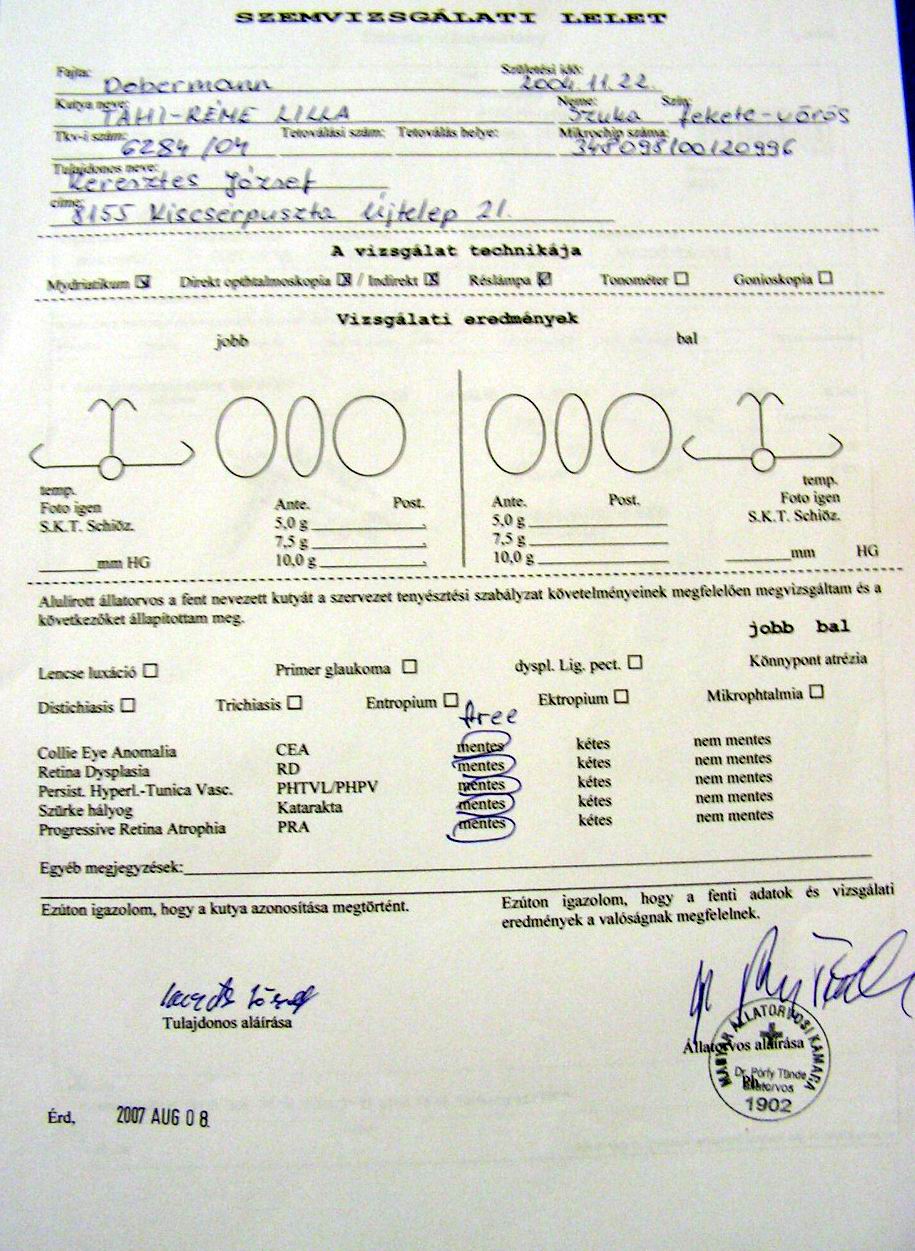 SZEMVIZSGÁLATI LELET
Fajta: Dobermann Születési idő: 2004.11.22.
Kutya neve: TAHI-RÉME LILLA Neme: Szuka Szín: fekete-vörös
Tkv-i szám: 6284/04 Tetoválási szám: Tetoválás helye: Mikrochip száma: 348098100120996
Tulajdonos neve: Keresztes József
címe: 8155 Kiscserpuszta Újtelep 21.
A vizsgálat technikája
Mydriatikum ☒ Direkt opthtalmoskopia ☒ / Indirekt ☒ Réslámpa ☒ Tonométer ☐ Gonioskopia ☐
Vizsgálati eredmények
jobb bal
temp. temp.
Foto igen Ante. Post. Ante. Post. Foto igen
S.K.T. Schiöz. 5,0 g 5,0 g S.K.T. Schiöz.
7,5 g 7,5 g
mm HG 10,0 g 10,0 g mm HG
Alulírott állatorvos a fent nevezett kutyát a szervezet tenyésztési szabályzat követelményeinek megfelelően megvizsgáltam és a
következőket állapítottam meg.
jobb bal
Lencse luxáció ☐ Primer glaukoma ☐ dyspl. Lig. pect. ☐ Könnypont atrézia
Distichiasis ☐ Trichiasis ☐ Entropium ☐ Ektropium ☐ Mikrophtalmia ☐
free
Collie Eye Anomalia CEA mentes kétes nem mentes
Retina Dysplasia RD mentes kétes nem mentes
Persist. Hyperl.-Tunica Vasc. PHTVL/PHPV mentes kétes nem mentes
Szürke hályog Katarakta mentes kétes nem mentes
Progressive Retina Atrophia PRA mentes kétes nem mentes
Egyéb megjegyzések:
Ezúton igazolom, hogy a kutya azonosítása megtörtént. Ezúton igazolom, hogy a fenti adatok és vizsgálati
eredmények a valóságnak megfelelnek.
Tulajdonos aláírása
MAGYAR ÁLLATORVOSI KAMARA
Állatorvos aláírása
Dr. Pórfy Tünde
Ph.
állatorvos
1902
Érd, 2007 AUG 08.